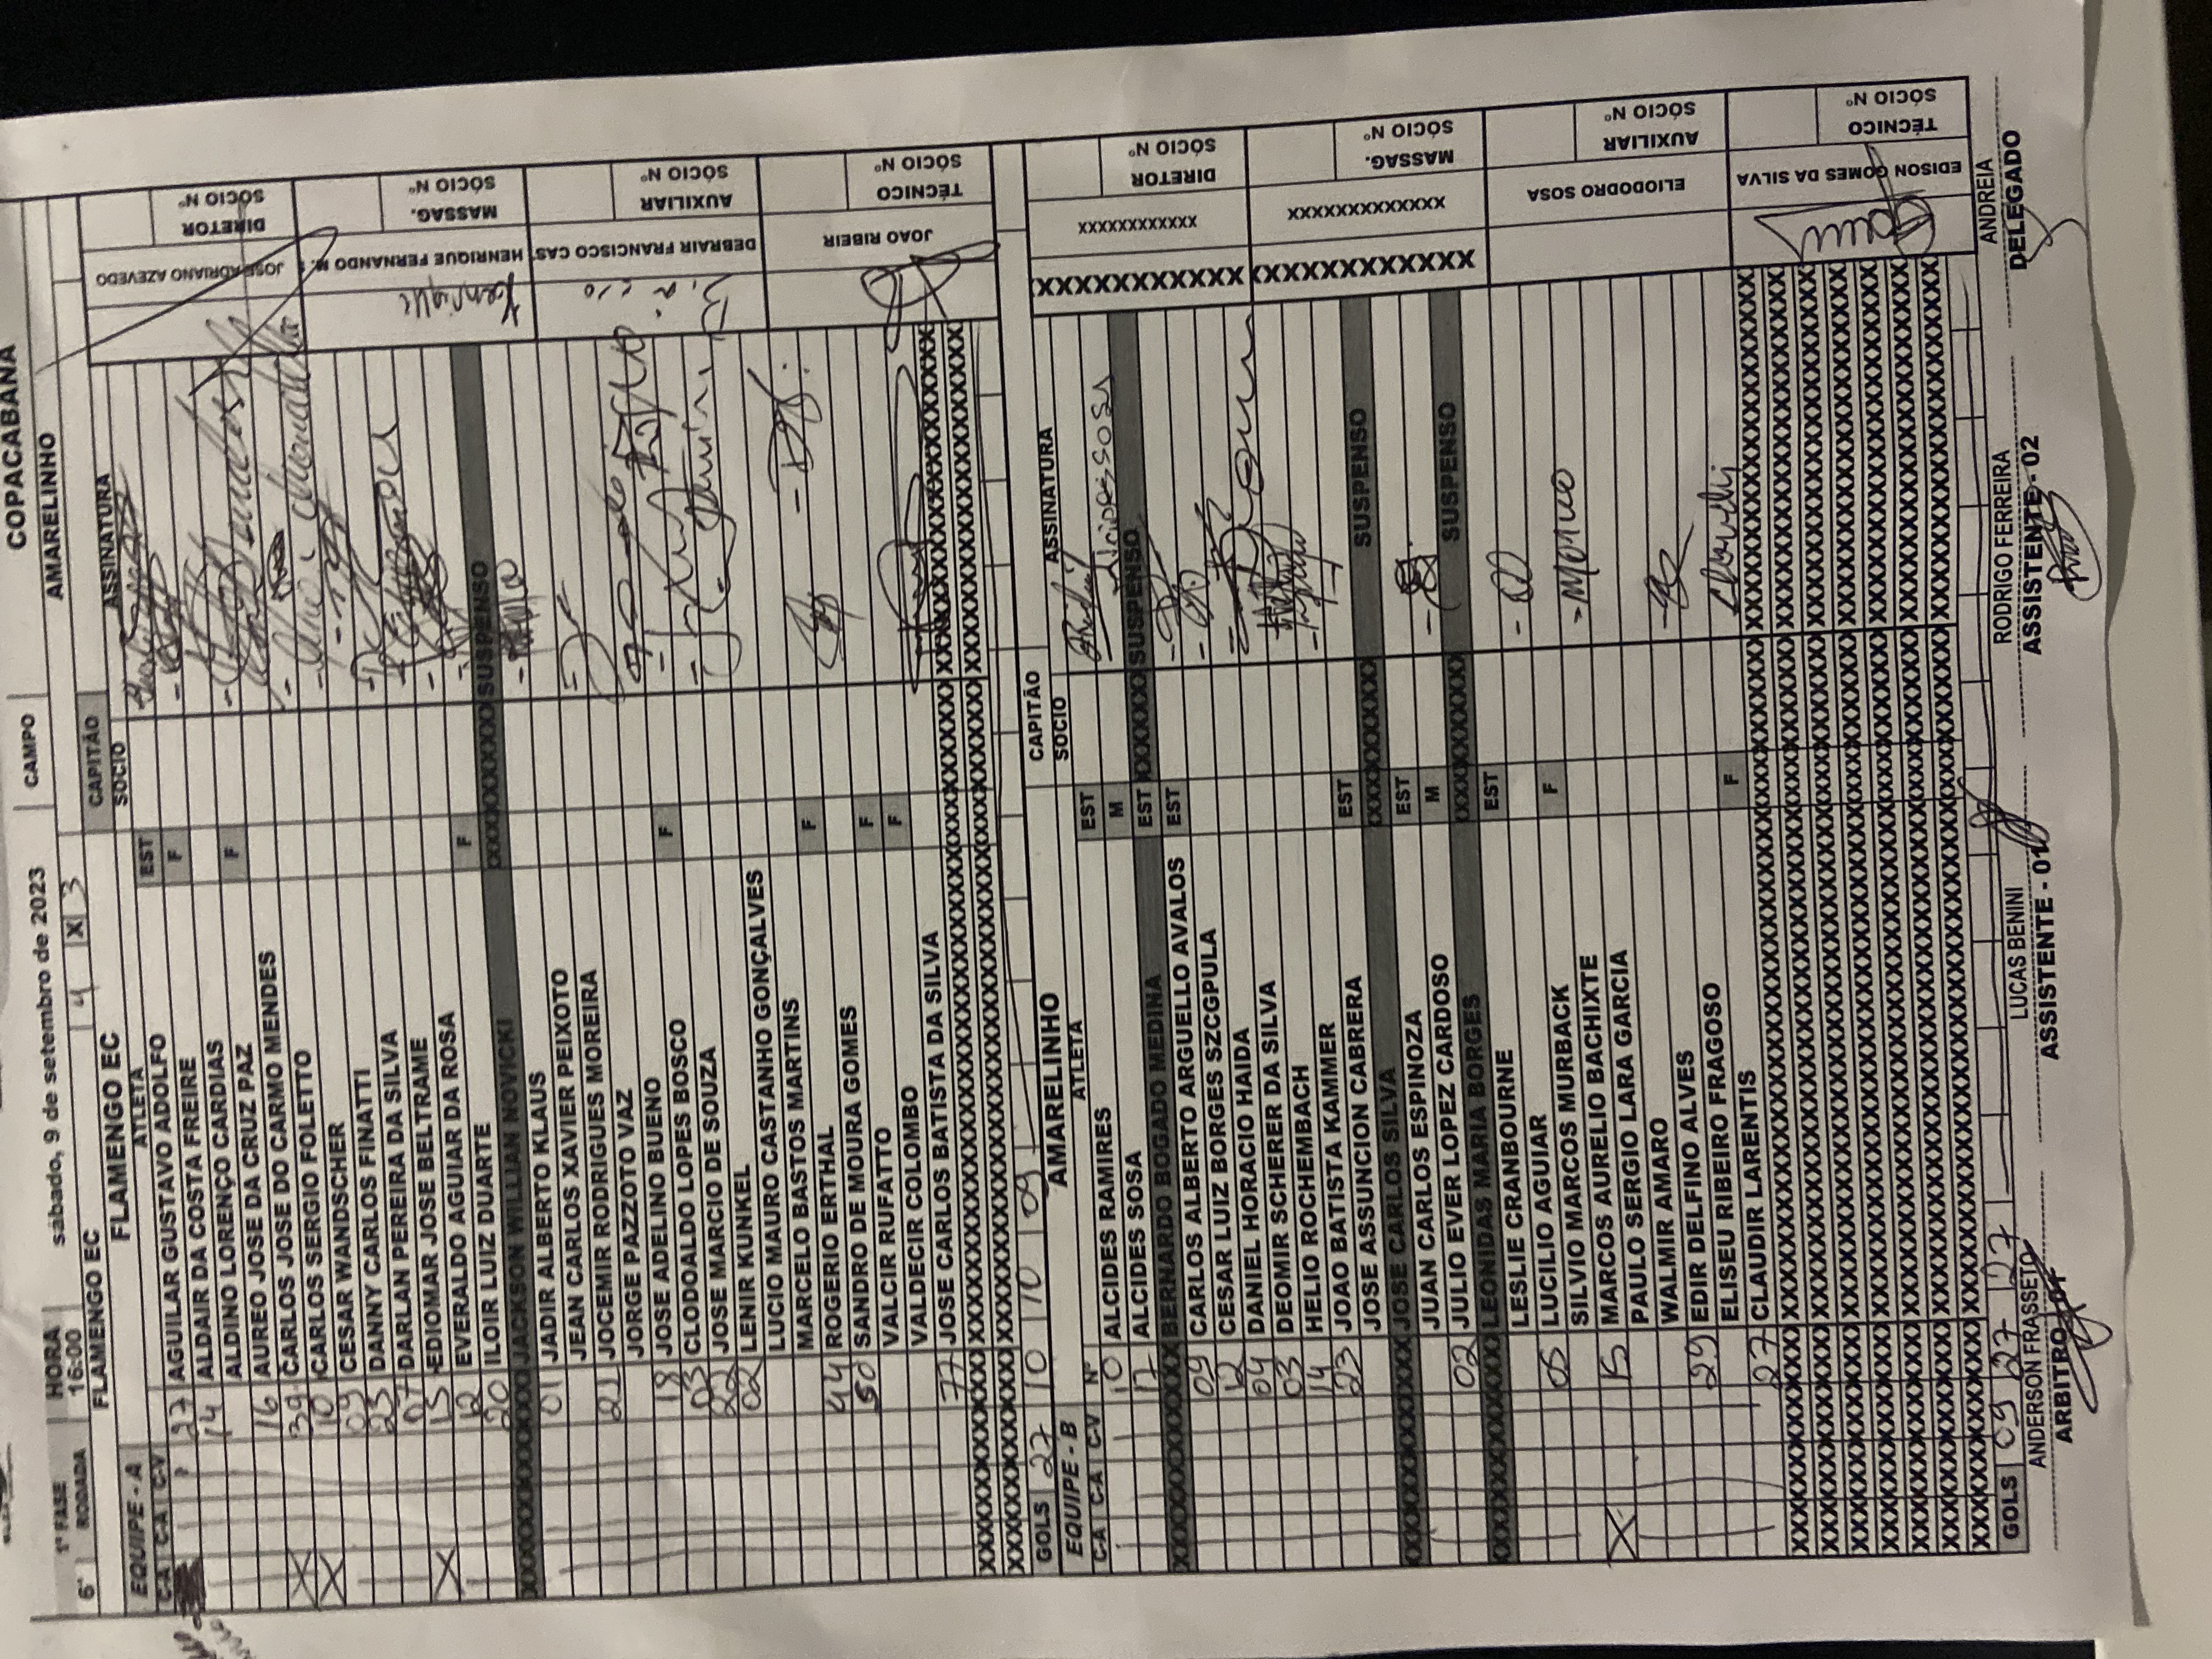 COPACABANA
1ª FASE HORA sábado, 9 de setembro de 2023 CAMPO
6ª RODADA 16:00 4 X 3 AMARELINHO
FLAMENGO EC
EQUIPE - A FLAMENGO EC CAPITÃO ASSINATURA
C-A C-A C-V ATLETA SOCIO
27 AGUILAR GUSTAVO ADOLFO EST
14 ALDAIR DA COSTA FREIRE F
ALDINO LORENÇO CARDIAS
16 AUREO JOSE DA CRUZ PAZ F
39 CARLOS JOSE DO CARMO MENDES
X 10 CARLOS SERGIO FOLETTO
X 09 CESAR WANDSCHER
23 DANNY CARLOS FINATTI
07 DARLAN PEREIRA DA SILVA
15 EDIOMAR JOSE BELTRAME
X 12 EVERALDO AGUIAR DA ROSA
20 ILOIR LUIZ DUARTE F
JACKSON WILLIAN NOVICKI SUSPENSO
01 JADIR ALBERTO KLAUS
JEAN CARLOS XAVIER PEIXOTO
21 JOCEMIR RODRIGUES MOREIRA
JORGE PAZZOTO VAZ
18 JOSE ADELINO BUENO
03 CLODOALDO LOPES BOSCO F
22 JOSE MARCIO DE SOUZA
02 LENIR KUNKEL
LUCIO MAURO CASTANHO GONÇALVES
MARCELO BASTOS MARTINS
44 ROGERIO ERTHAL F
50 SANDRO DE MOURA GOMES
VALCIR RUFATTO F
VALDECIR COLOMBO F
77 JOSE CARLOS BATISTA DA SILVA
JOSE ADRIANO AZEVEDO DIRETOR SÓCIO Nº
HENRIQUE FERNANDO M. MASSAG. SÓCIO Nº
Henrique
DEBRAIR FRANCISCO CAS AUXILIAR SÓCIO Nº
JOAO RIBEIR TÉCNICO SÓCIO Nº
GOLS 27 10 10 09
EQUIPE - B AMARELINHO CAPITÃO ASSINATURA
C-A C-A C-V Nº ATLETA SOCIO
10 ALCIDES RAMIRES EST
17 ALCIDES SOSA M
BERNARDO BOGADO MEDINA EST SUSPENSO
09 CARLOS ALBERTO ARGUELLO AVALOS EST
12 CESAR LUIZ BORGES SZCGPULA
04 DANIEL HORACIO HAIDA
03 DEOMIR SCHERER DA SILVA
14 HELIO ROCHEMBACH
23 JOAO BATISTA KAMMER
JOSE ASSUNCION CABRERA EST
JOSE CARLOS SILVA SUSPENSO
JUAN CARLOS ESPINOZA EST
02 JULIO EVER LOPEZ CARDOSO M
LEONIDAS MARIA BORGES SUSPENSO
LESLIE CRANBOURNE EST
05 LUCILIO AGUIAR
SILVIO MARCOS MURBACK F
X 15 MARCOS AURELIO BACHIXTE
PAULO SERGIO LARA GARCIA
WALMIR AMARO
29 EDIR DELFINO ALVES
ELISEU RIBEIRO FRAGOSO
27 CLAUDIR LARENTIS F
XXXXXXXXXXXX DIRETOR SÓCIO Nº
XXXXXXXXXXXXX MASSAG. SÓCIO Nº
ELIODODRO SOSA AUXILIAR SÓCIO Nº
EDISON GOMES DA SILVA TÉCNICO SÓCIO Nº
GOLS 09 27 27
ANDERSON FRASSETO LUCAS BENINI RODRIGO FERREIRA ANDREIA
ARBITRO ASSISTENTE - 01 ASSISTENTE - 02 DELEGADO